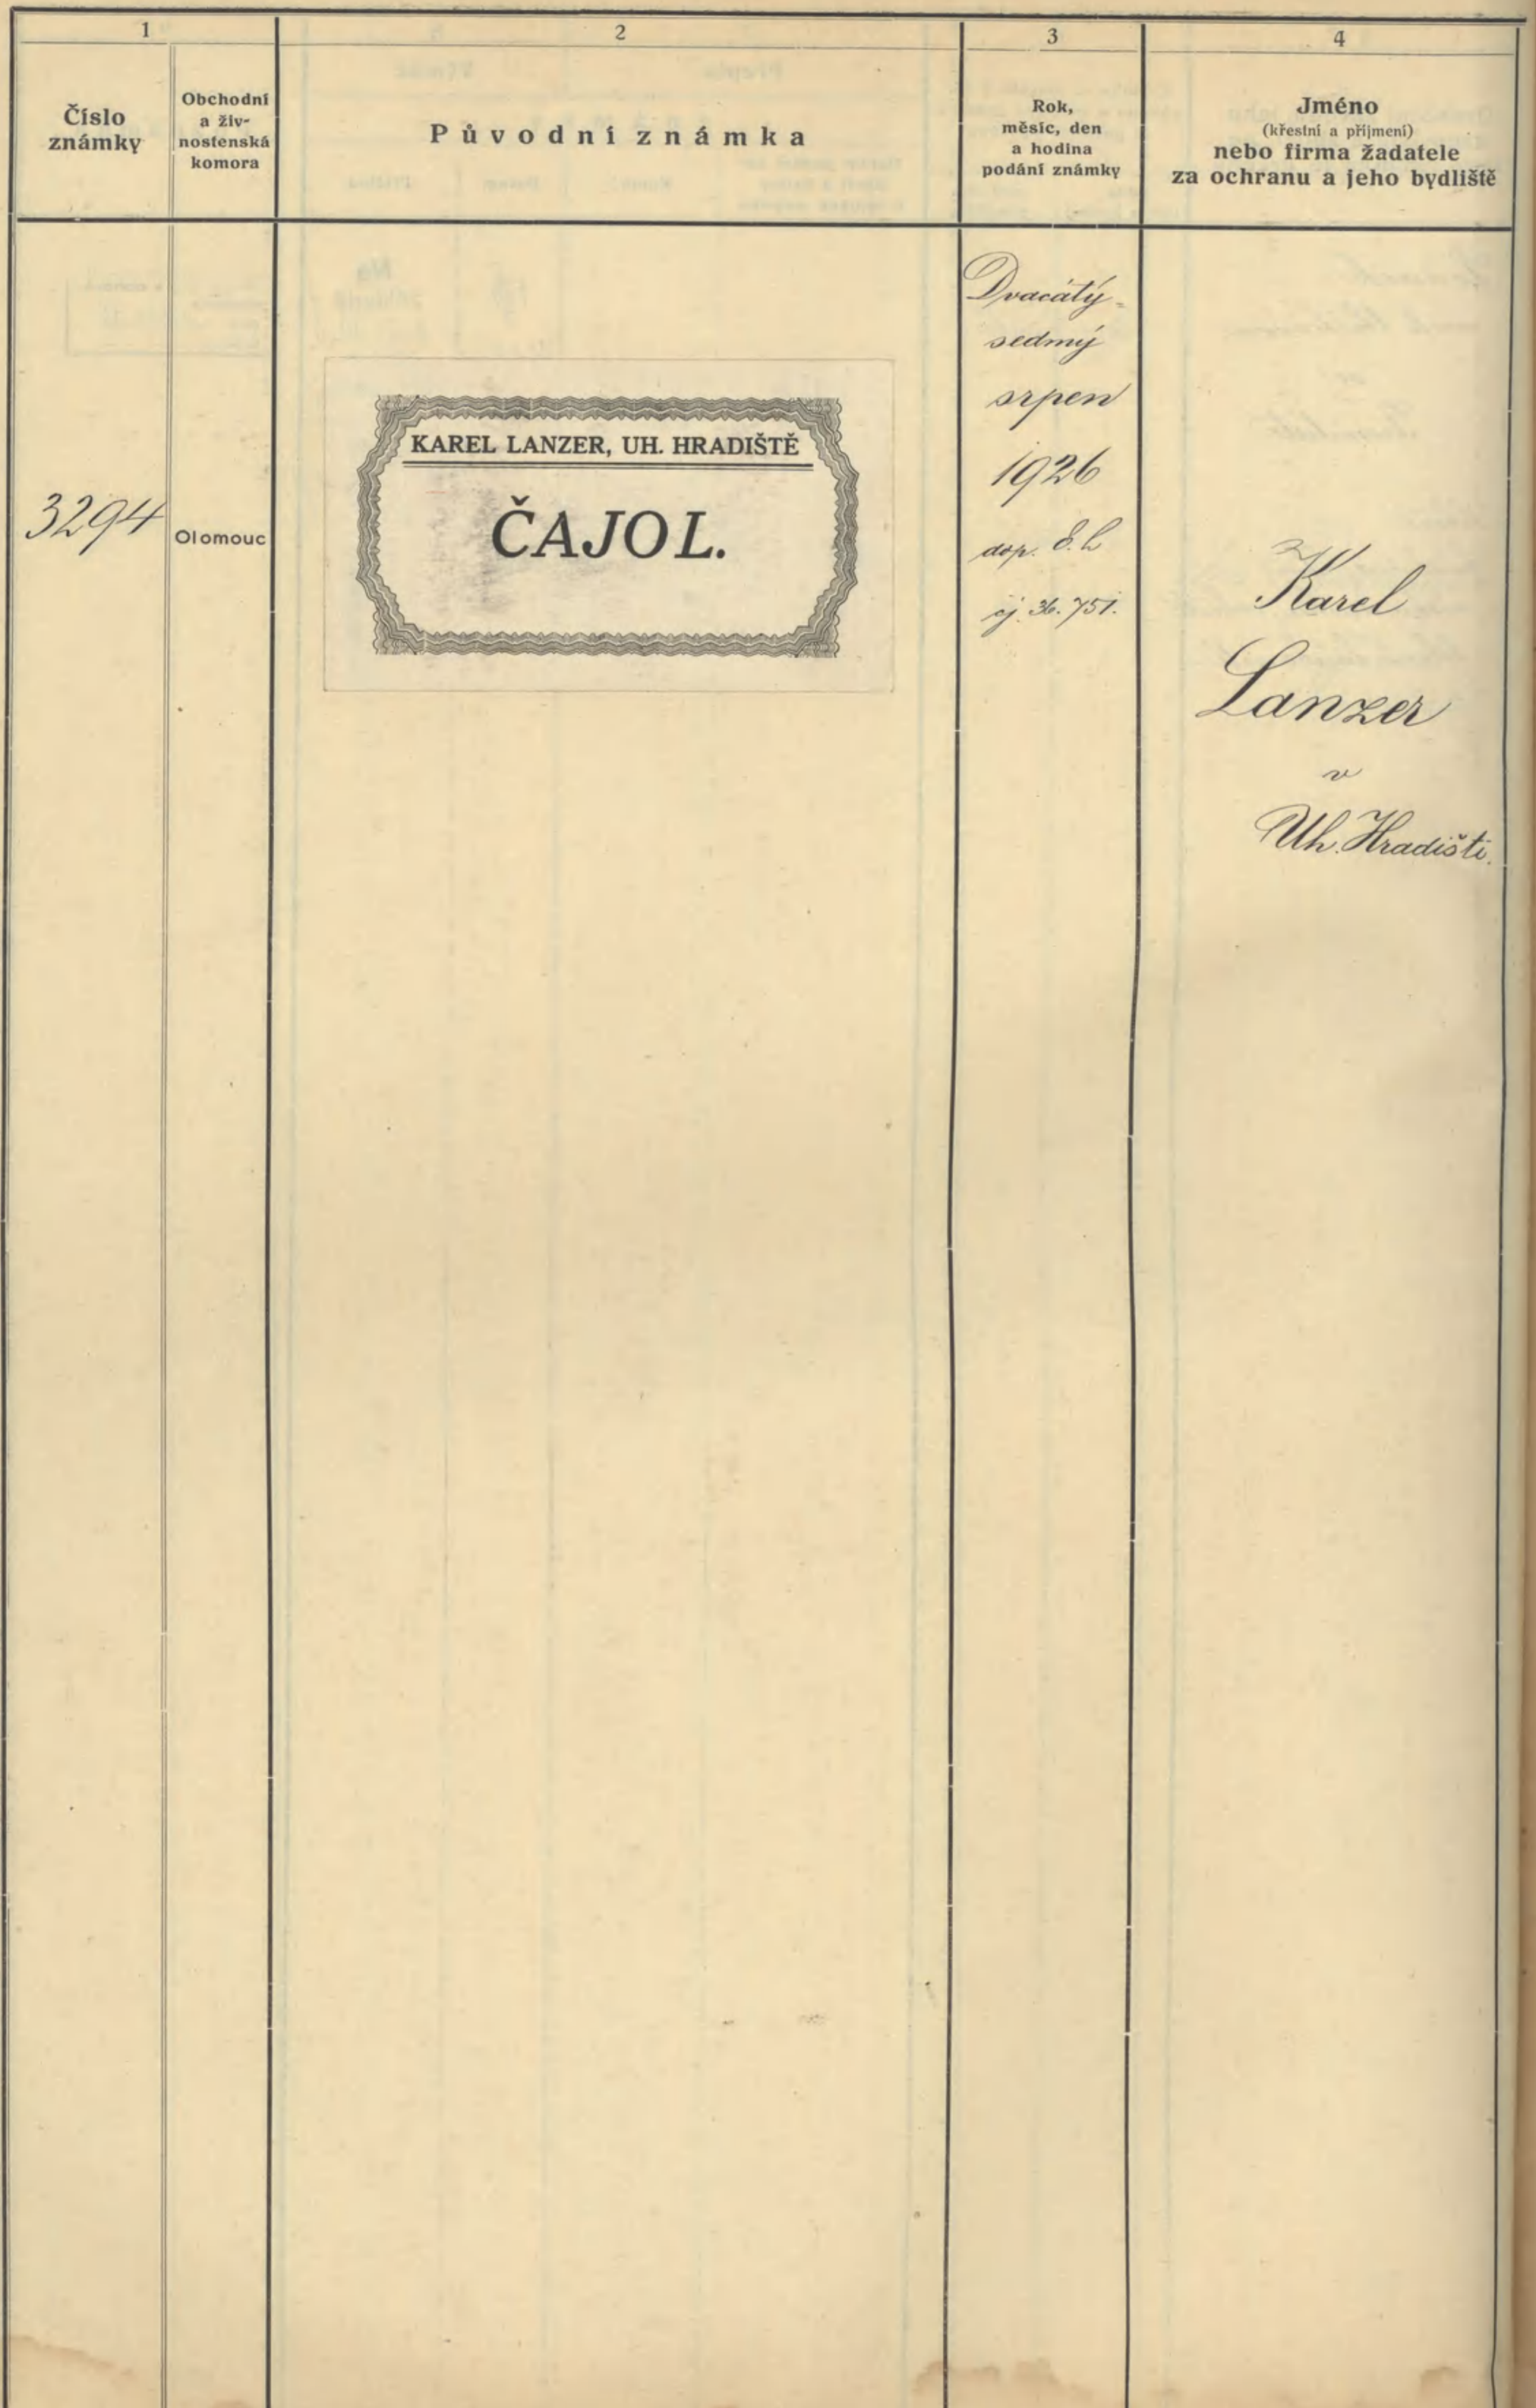 1
2
3
4
Číslo
známky
Obchodní
a živ-
nostenská
komora
Původní známka
Rok,
měsíc, den
a hodina
podání známky
Jméno
(křestní a příjmení)
nebo firma žadatele
za ochranu a jeho bydliště
3294
Olomouc
KAREL LANZER, UH. HRADIŠTĚ
ČAJOL.
Dvacátý-
sedmý
srpen
1926
dop. 8. h
čj. 36.751.
Karel
Lanzer
v
Uh. Hradišti.